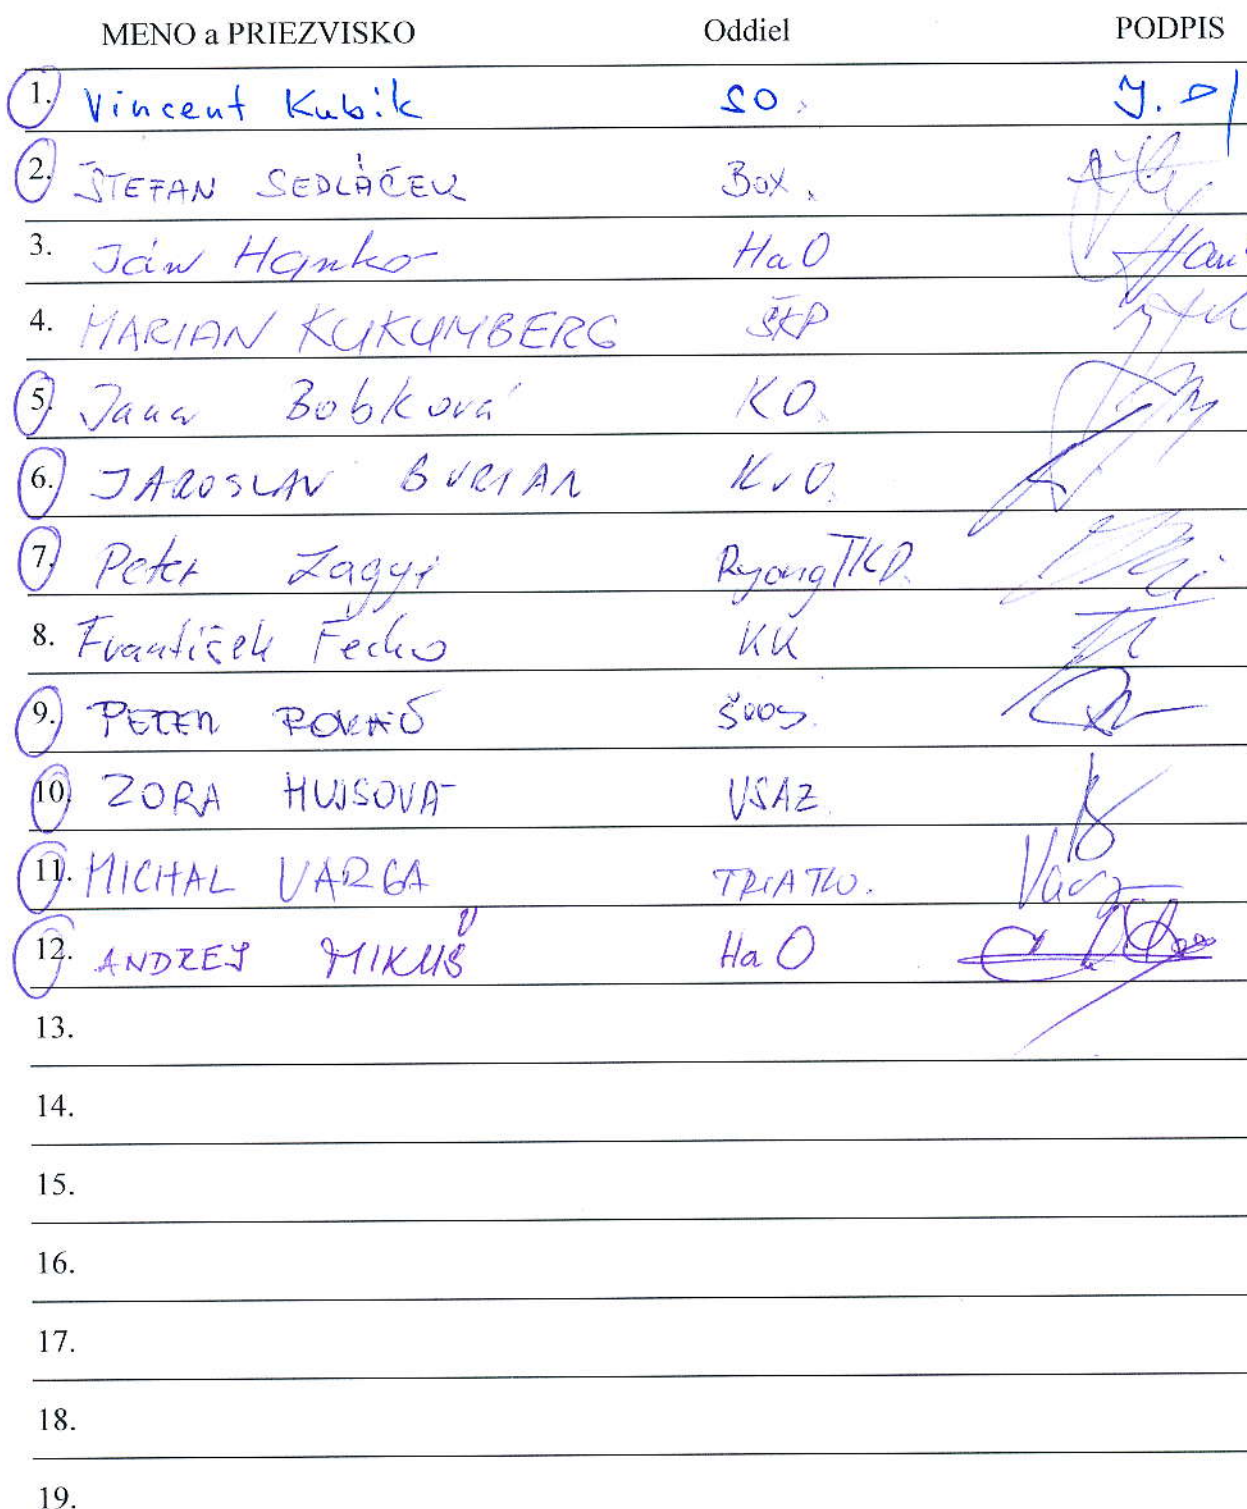 MENO a PRIEZVISKO Oddiel PODPIS
1. Vincent Kubik SO.
2. ŠTEFAN SEDLÁČEK Box.
3. Ján Hanko HaO
4. MARIAN KUKUMBERG ŠKP
5. Jana Bobková KO.
6. JAROSLAV BURIAN KvO.
7. Peter Lagyi RyongTKD.
8. František Fecko KK
9. PETER
10. ZORA HUJSOVÁ VSAZ.
11. MICHAL VARGA TRIATLO.
12. ANDREJ MIKUŠ HaO
13.
14.
15.
16.
17.
18.
19.